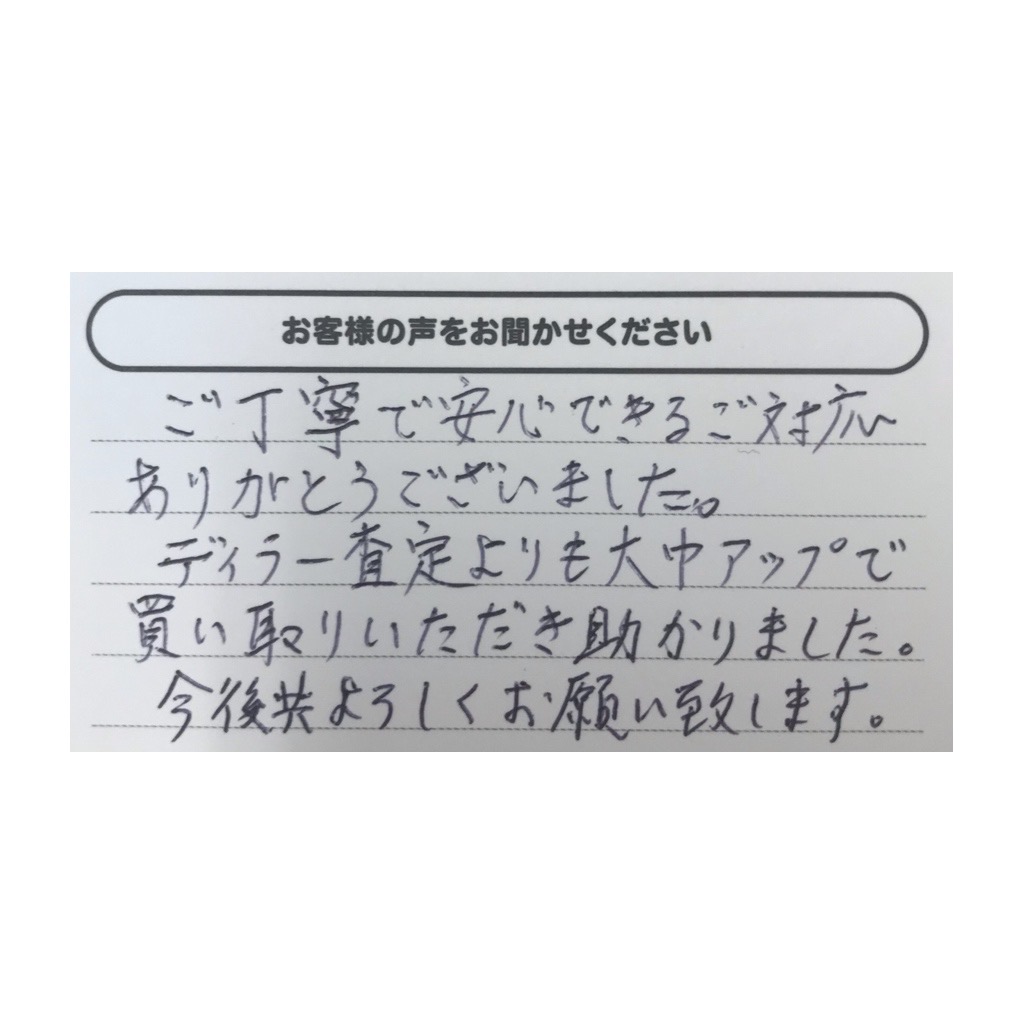 お客様の声をお聞かせください
ご丁寧で安心できるご対応
ありがとうございました。
ディラー査定よりも大巾アップで
買い取りいただき助かりました。
今後共よろしくお願い致します。